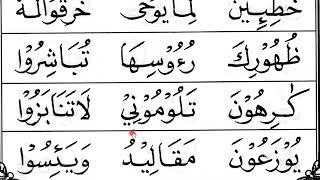 خٰطِئِيْنَ لِمَا يُوْحٰى خَرَقُوْا لَهٗ
ظُهُوْرِكَ رُءُوْسِهَا تُبَاشِرُوْا
كٰرِهُوْنَ تَلُوْمُوْنِيْ لَاتَنَابَزُوْا
يُوْزَعُوْنَ مَقَالِيْدُ وَيَئِسُوْا